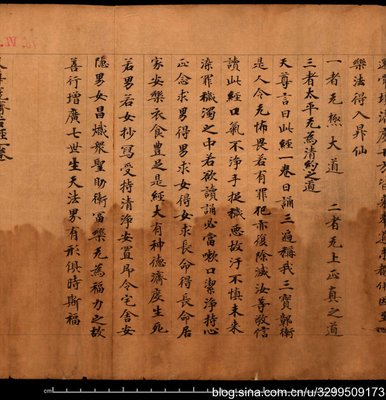 樂法得入昇仙
一者无極大道　二者无上正真之道
三者太平无為清約之道
天尊言曰此經一卷日誦三遍稱我三寶
是人令无怖畏若有罪犯亦復除滅汝等敬信
讀此經口氣不淨手捉穢惡故汙不慎未來
染罪穢濁之中若欲讀誦必當嗽口潔淨持心
正念求男得男求女得女求長命得長命居
家安樂衣食豊足是經大有神德濟度生死
若男若女抄寫受持清淨安置即令宅舍安
隱男女昌熾衆聖助衛富樂无為福力之故
善行增廣七世生天法界有形俱時斯福
blog.sina.com.cn/u/3299509173
cm